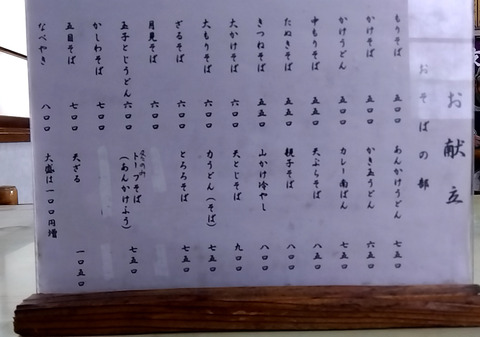 お献立
おそばの部
もりそば 五〇〇
かけそば 五〇〇
かけうどん 五〇〇
中もりそば 五五〇
たぬきそば 五五〇
きつねそば 五五〇
大かけそば 六〇〇
大もりそば 六〇〇
ざるそば 六〇〇
月見そば 六〇〇
玉子とじうどん 六〇〇
かしわそば 七〇〇
五目そば 七〇〇
なべやき 八〇〇
あんかけうどん 七五〇
かき玉うどん 六五〇
カレー南ばん 七五〇
天ぷらそば 八五〇
親子そば 八〇〇
山かけ冷やし 八〇〇
天とじそば 九〇〇
力うどん(そば) 七五〇
とろろそば 七五〇
トーフそば 七五〇
(あんかけふう)
天ざる 一〇五〇
大盛は一〇〇円増